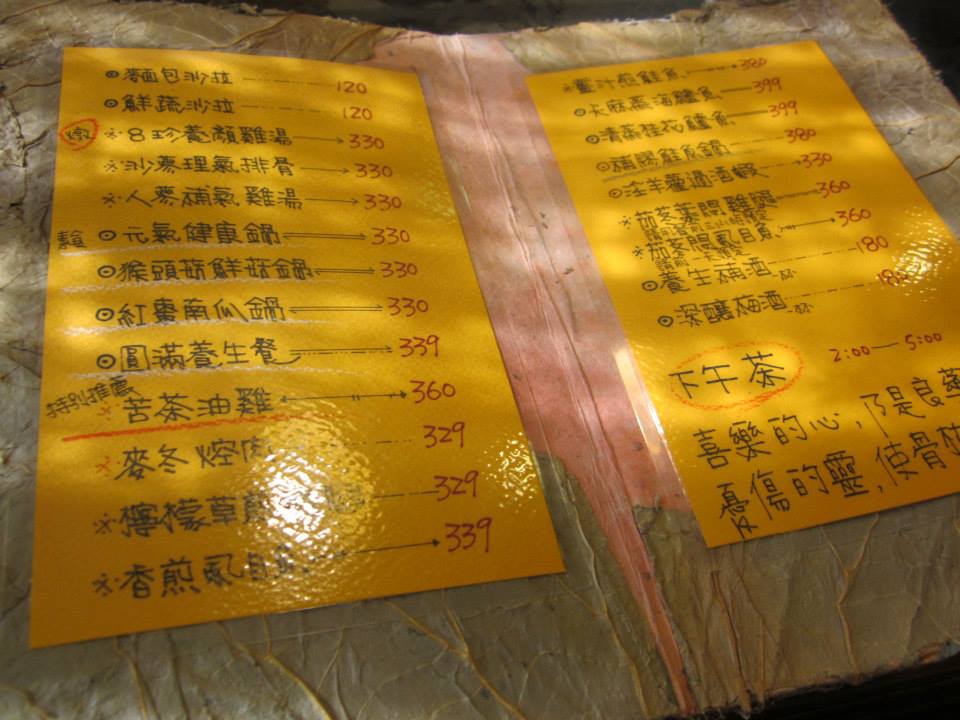 ⊙麵包沙拉 120
⊙鮮蔬沙拉 120
燉 ※8珍養顏雞湯 330
※沙蔘理氣排骨 330
※人蔘補氣雞湯 330
素食 ⊙元氣健康鍋 330
⊙猴頭菇鮮菇鍋 330
⊙紅棗南瓜鍋 330
⊙圓滿養生餐 339
特別推薦
※苦茶油雞 360
※麥冬焢肉 329
※檸檬草 329
※香煎鳳目魚 339
※薑汁煎鮭魚 380
⊙天麻蒸海鱸魚 399
⊙清蒸桂花鱸魚 399
⊙補陽鮭魚鍋 380
⊙淫羊藿過酒蝦 330
※茄苳葉悶雞 360
※茄苳悶鳳目魚 360
⊙養生補酒 杯 180
⊙深釀梅酒 杯 180
下午茶 2:00—5:00
喜樂的心,乃是良
憂傷的靈,使骨